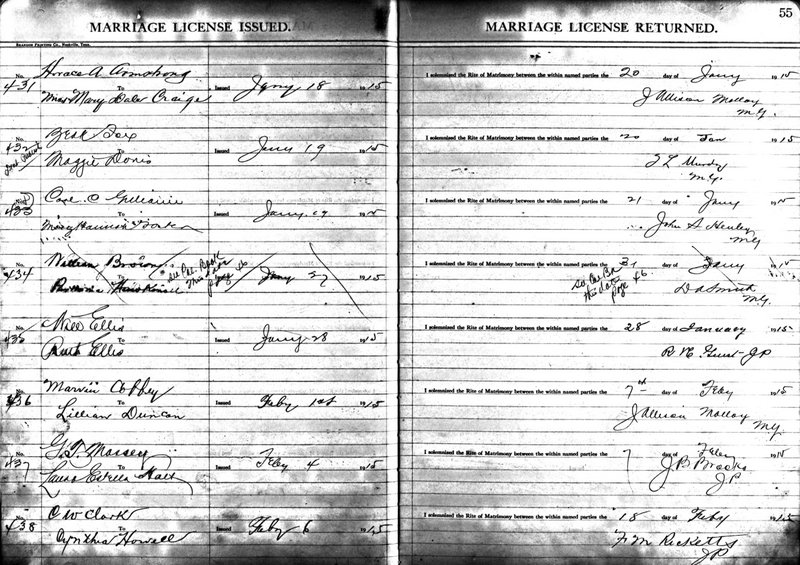 55
MARRIAGE LICENSE ISSUED.
MARRIAGE LICENSE RETURNED.
No. 431
Horace A Armstrong
To
Miss Mary Dale Craige
Issued Jany 18 1915
I solemnized the Rite of Matrimony between the within named parties the 20 day of Jany 1915
J Allison Molloy
M.G.
No. 432
Fox
To
Maggie
Issued Jany 19 1915
I solemnized the Rite of Matrimony between the within named parties the 20 day of Jan 1915
M.G.
No. 433
To
Issued Jany 19 191
I solemnized the Rite of Matrimony between the within named parties the 21 day of Jany 191
John A Henley
MG
No. 434
William Brown
To
See Col. Book
this date
page 46
Issued Jany 27 1915
I solemnized the Rite of Matrimony between the within named parties the 31 day of Jany 191
See Col Bk
this date
page 46.
D A Smith
M.G.
No. 435
Will Ellis
To
Ruth Ellis
Issued Jany 28 1915
I solemnized the Rite of Matrimony between the within named parties the 28 day of January 1915
JP
No. 436
Marvin Coffey
To
Lillian Duncan
Issued Feby 1st 1915
I solemnized the Rite of Matrimony between the within named parties the 7 day of Feby 1915
J Allison Molloy
M.G.
No. 437
G. T. Massey
To
Laura Estelle
Issued Feby 4 1915
I solemnized the Rite of Matrimony between the within named parties the 7 day of Feby 191
J B Brooks
JP
No. 438
C W Clark
To
Cynthia Howell
Issued Feby 6 1915
I solemnized the Rite of Matrimony between the within named parties the 18 day of Feby 1915
F M Ricketts
JP